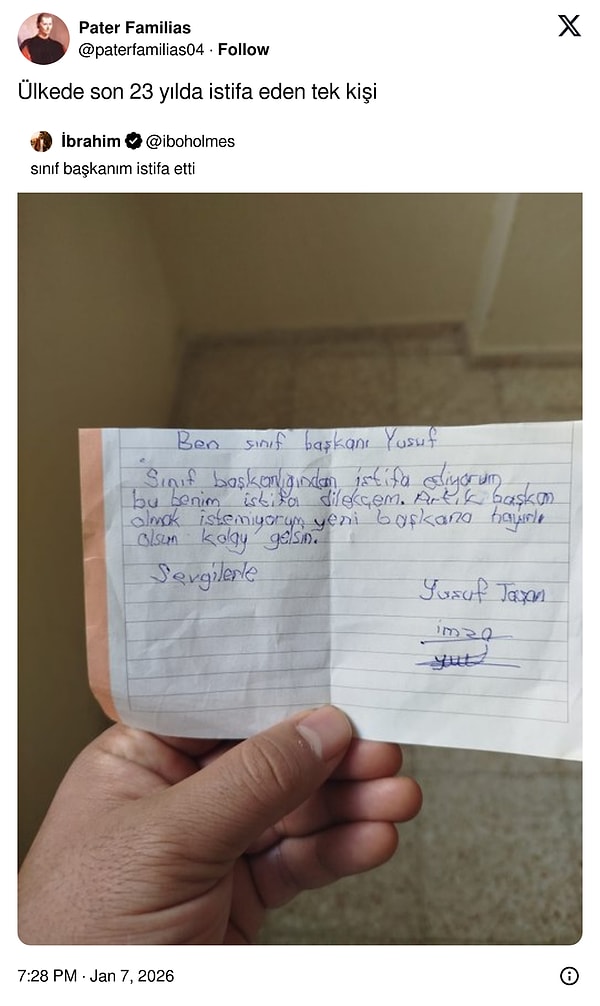 Pater Familias
@paterfamilias04 · Follow
Ülkede son 23 yılda istifa eden tek kişi
İbrahim @iboholmes
sınıf başkanım istifa etti
Ben sınıf başkanı Yusuf
Sınıf başkanlığından istifa ediyorum
bu benim istifa dilekçem. Artık başkan
olmak istemiyorum yeni başkana hayırlı
olsun kolay gelsin.
Sevgilerle
Yusuf
imza
7:28 PM · Jan 7, 2026